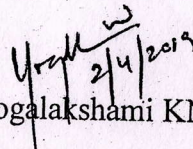 2/4/2019
ogalakshami KN